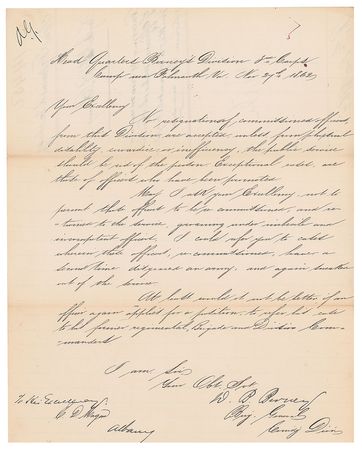 Head Quarters Birney's Division 3rd Corps
Camp near Falmouth Va Nov 27th 1862
Your Excellency
No resignations of commissioned officers
from this Division are accepted, unless from physical
disability, cowardice, or inefficiency, the public service
should be rid of the person. Exceptional cases are
those of officers who have been promoted.
May I ask your Excellency, not to
permit these officers to be commissioned, and re-
turned to the service
incompetent officers, I could refer you to cases
wherein these officers, re-commissioned, have a
second time disgraced an army, and again sneaked
out of the service.
At least would it not be better if an
officer again applies for a position, to refer his case
to his former regimental, Brigade and Division Com-
manders
I am Sir
Your Obt Svt
D. B. Birney
Brig. General
Comdg Divn
To His Excellency
E. D. Morgan
Albany